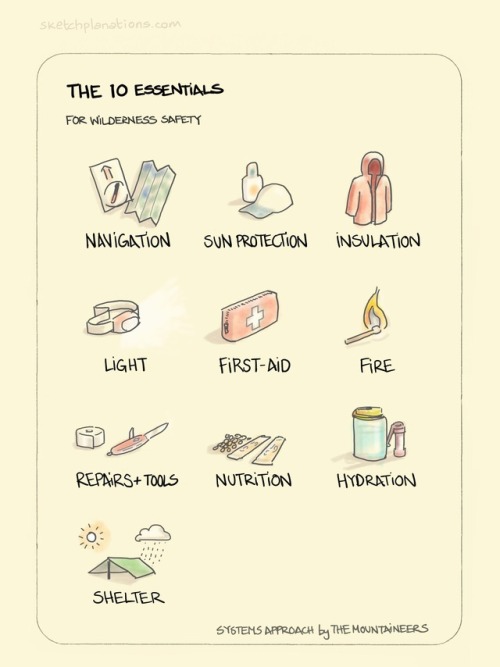 sketchplanations.com
THE 10 ESSENTIALS
FOR WILDERNESS SAFETY
NAVIGATION
SUN PROTECTION
INSULATION
LIGHT
FIRST-AID
FIRE
REPAIRS+TOOLS
NUTRITION
HYDRATION
SHELTER
SYSTEMS APPROACH by THE MOUNTAINEERS